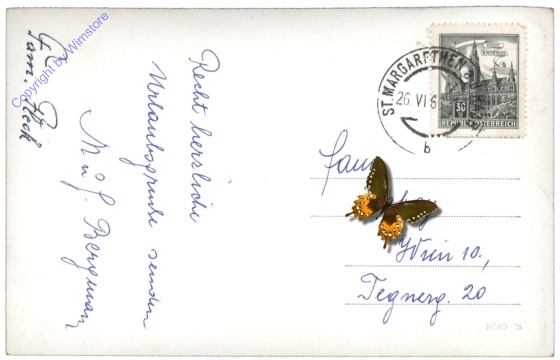 Fam. Fleck
Recht herzliche
Urlaubsgrüße senden
M u J. Bergmann
Copyright by Wimstore
ST. MARGARETHEN
26. VI 6
b
30
REPUBLIK ÖSTERREICH
Fam.
Wien 10.,
Tegnerg. 20